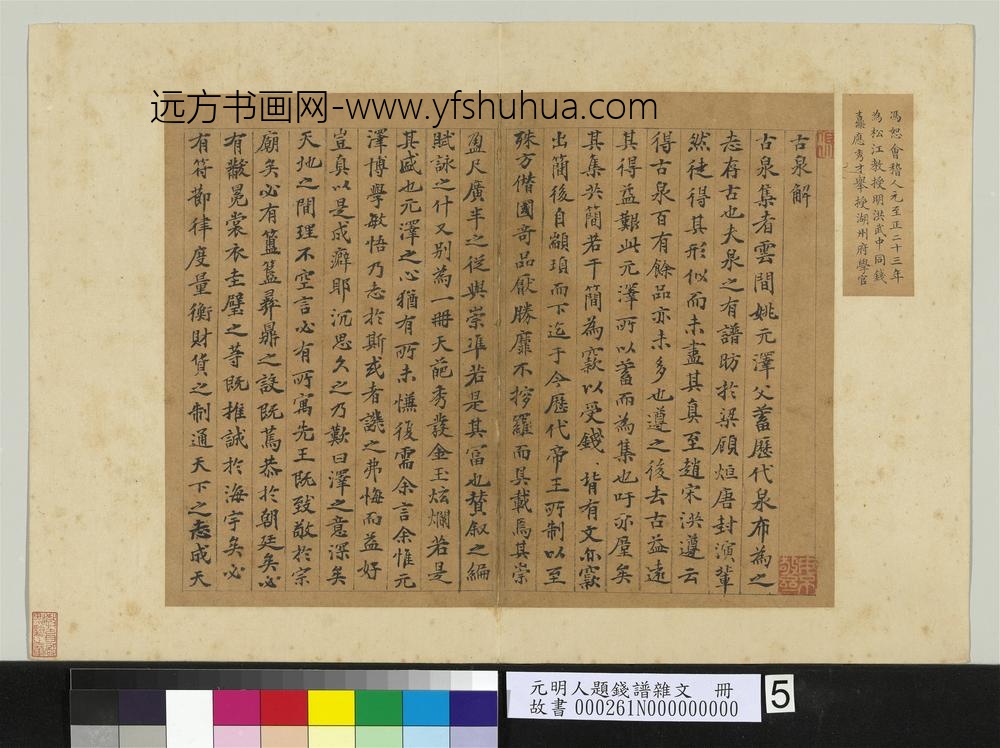 远方书画网-www.yfshuhua.com
馮恕會稽人元至正二十三年
為松江教授明洪武中同錢
應秀才舉授湖州府學官
古泉解
古泉集者雲間姚元澤父蓄歷代泉布為之
志存古也夫泉之有譜昉於梁顧烜唐封演輩
然徒得其形似而未盡其真至趙宋洪遵云
得古泉百有餘品亦未多也遵之後去古益遠
其得益艱此元澤所以蓄而為集也吁亦廑矣
其集於簡若干簡為窾以受錢皆有文亦窾
出簡後自顓頊而下迄于今歷代帝王所制以至
殊方僭國奇品厭勝靡不搜羅而具載焉其崇
盈尺廣半之從與崇準若是其富也贊叙之編
賦詠之什又別為一冊天葩秀發金玉炫爛若是
其盛也元澤之心猶有所未慊復需余言余惟元
澤博學敏悟乃志於斯或者譏之弗悔而益好
豈真以是成癖耶沉思久之乃歎曰澤之意深矣
天地之間理不空言必有所寓先王既致敬於宗
廟矣必有簠簋彝鼎之設既蔫恭於朝廷矣必
有黻冕裳衣圭璧之等既推誠於海宇矣必
有符節律度量衡財貨之制通天下之志成天
元明人題錢譜雜文 冊
故書000261N000000000
5